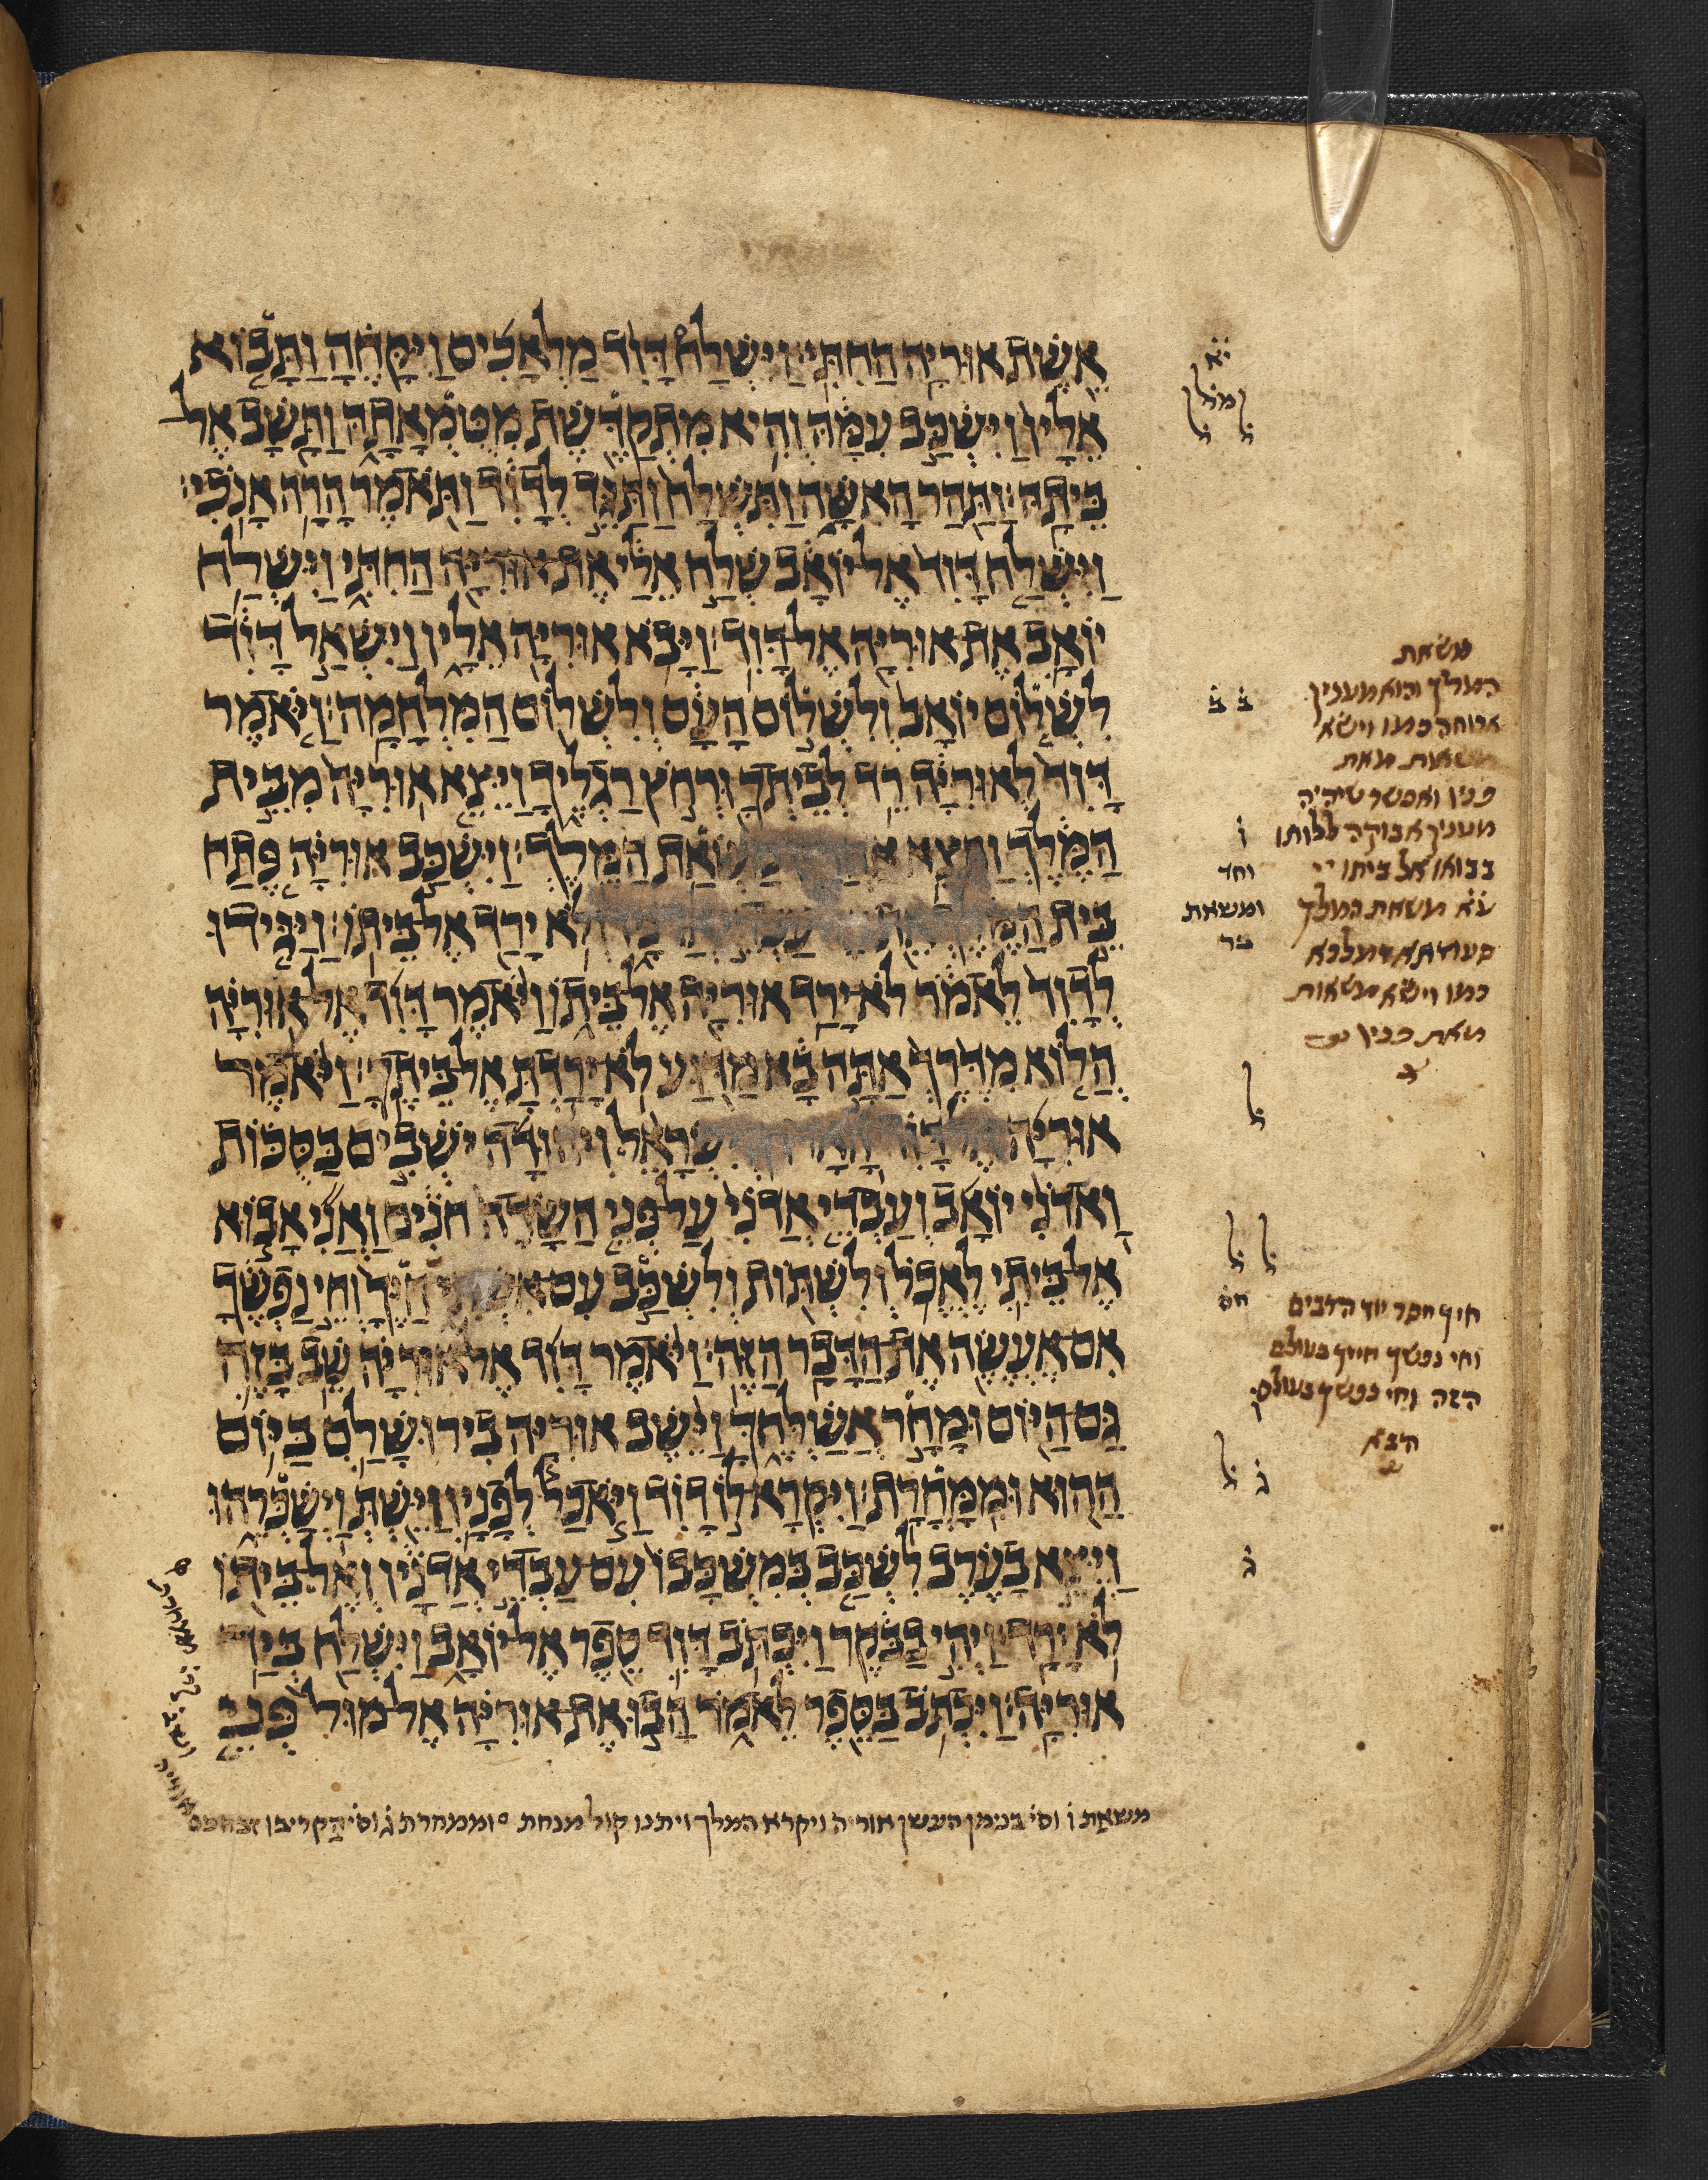 אשת אוריה החתי׃ וישלח דוד מלאכים ויקחה ותבוא
אליו וישכב עמה והיא מתקדשת מטמאתה ותשב אל
ביתה׃ ותהר האשה ותשלח ותגד לדוד ותאמר הרה אנכי׃
וישלח דוד אל יואב שלח אלי את אוריה החתי וישלח
יואב את אוריה אל דוד׃ ויבא אוריה אליו וישאל דוד
לשלום יואב ולשלום העם ולשלום המלחמה׃ ויאמר
דוד לאוריה רד לביתך ורחץ רגליך ויצא אוריה מבית
המלך ותצא משאת המלך׃ וישכב אוריה פתח
בית לא ירד אל ביתו׃ ויגידו
לדוד לאמר לא ירד אוריה אל ביתו ויאמר דוד אל אוריה
הלוא מדרך אתה בא מדוע לא ירדת אל ביתך׃ ויאמר
אוריה ישראל ויהודה ישבים בסכות
ואדני יואב ועבדי אדני על פני השדה חנים ואני אבוא
אל ביתי לאכל ולשתות ולשכב עם אשתי חיך וחי נפשך
אם אעשה את הדבר הזה׃ ויאמר דוד אל אוריה שב בזה
גם היום ומחר אשלחך וישב אוריה בירושלם ביום
ההוא וממחרת׃ ויקרא לו דוד ויאכל לפניו וישת וישכרהו
ויצא בערב לשכב במשכבו עם עבדי אדניו ואל ביתו
לא ירד׃ ויהי בבקר ויכתב דוד ספר אל יואב וישלח ביד
אוריה׃ ויכתב בספר לאמר הבו את אוריה אל מול פני
משאת ו וסי בנימן העשן אוריה ויקרא המלך ויתנו קול מנחת ׄ וממחרת ג וסי הקריבו זבחם
משאת
המלך והוא מענין
ארוחה כמו וישא
משאות מאת
פניו ואפשר שיהיה
מענין אבוקה ללותו
בבואו אל ביתו
משאת המלך
סעודתא דמלכא
כמו וישא משאות
מאת פניו
ומשאת
חיך חסר יוד הרבים
וחי נפשך חייך בעולם
הזה וחי נפשך בעולם
הבא